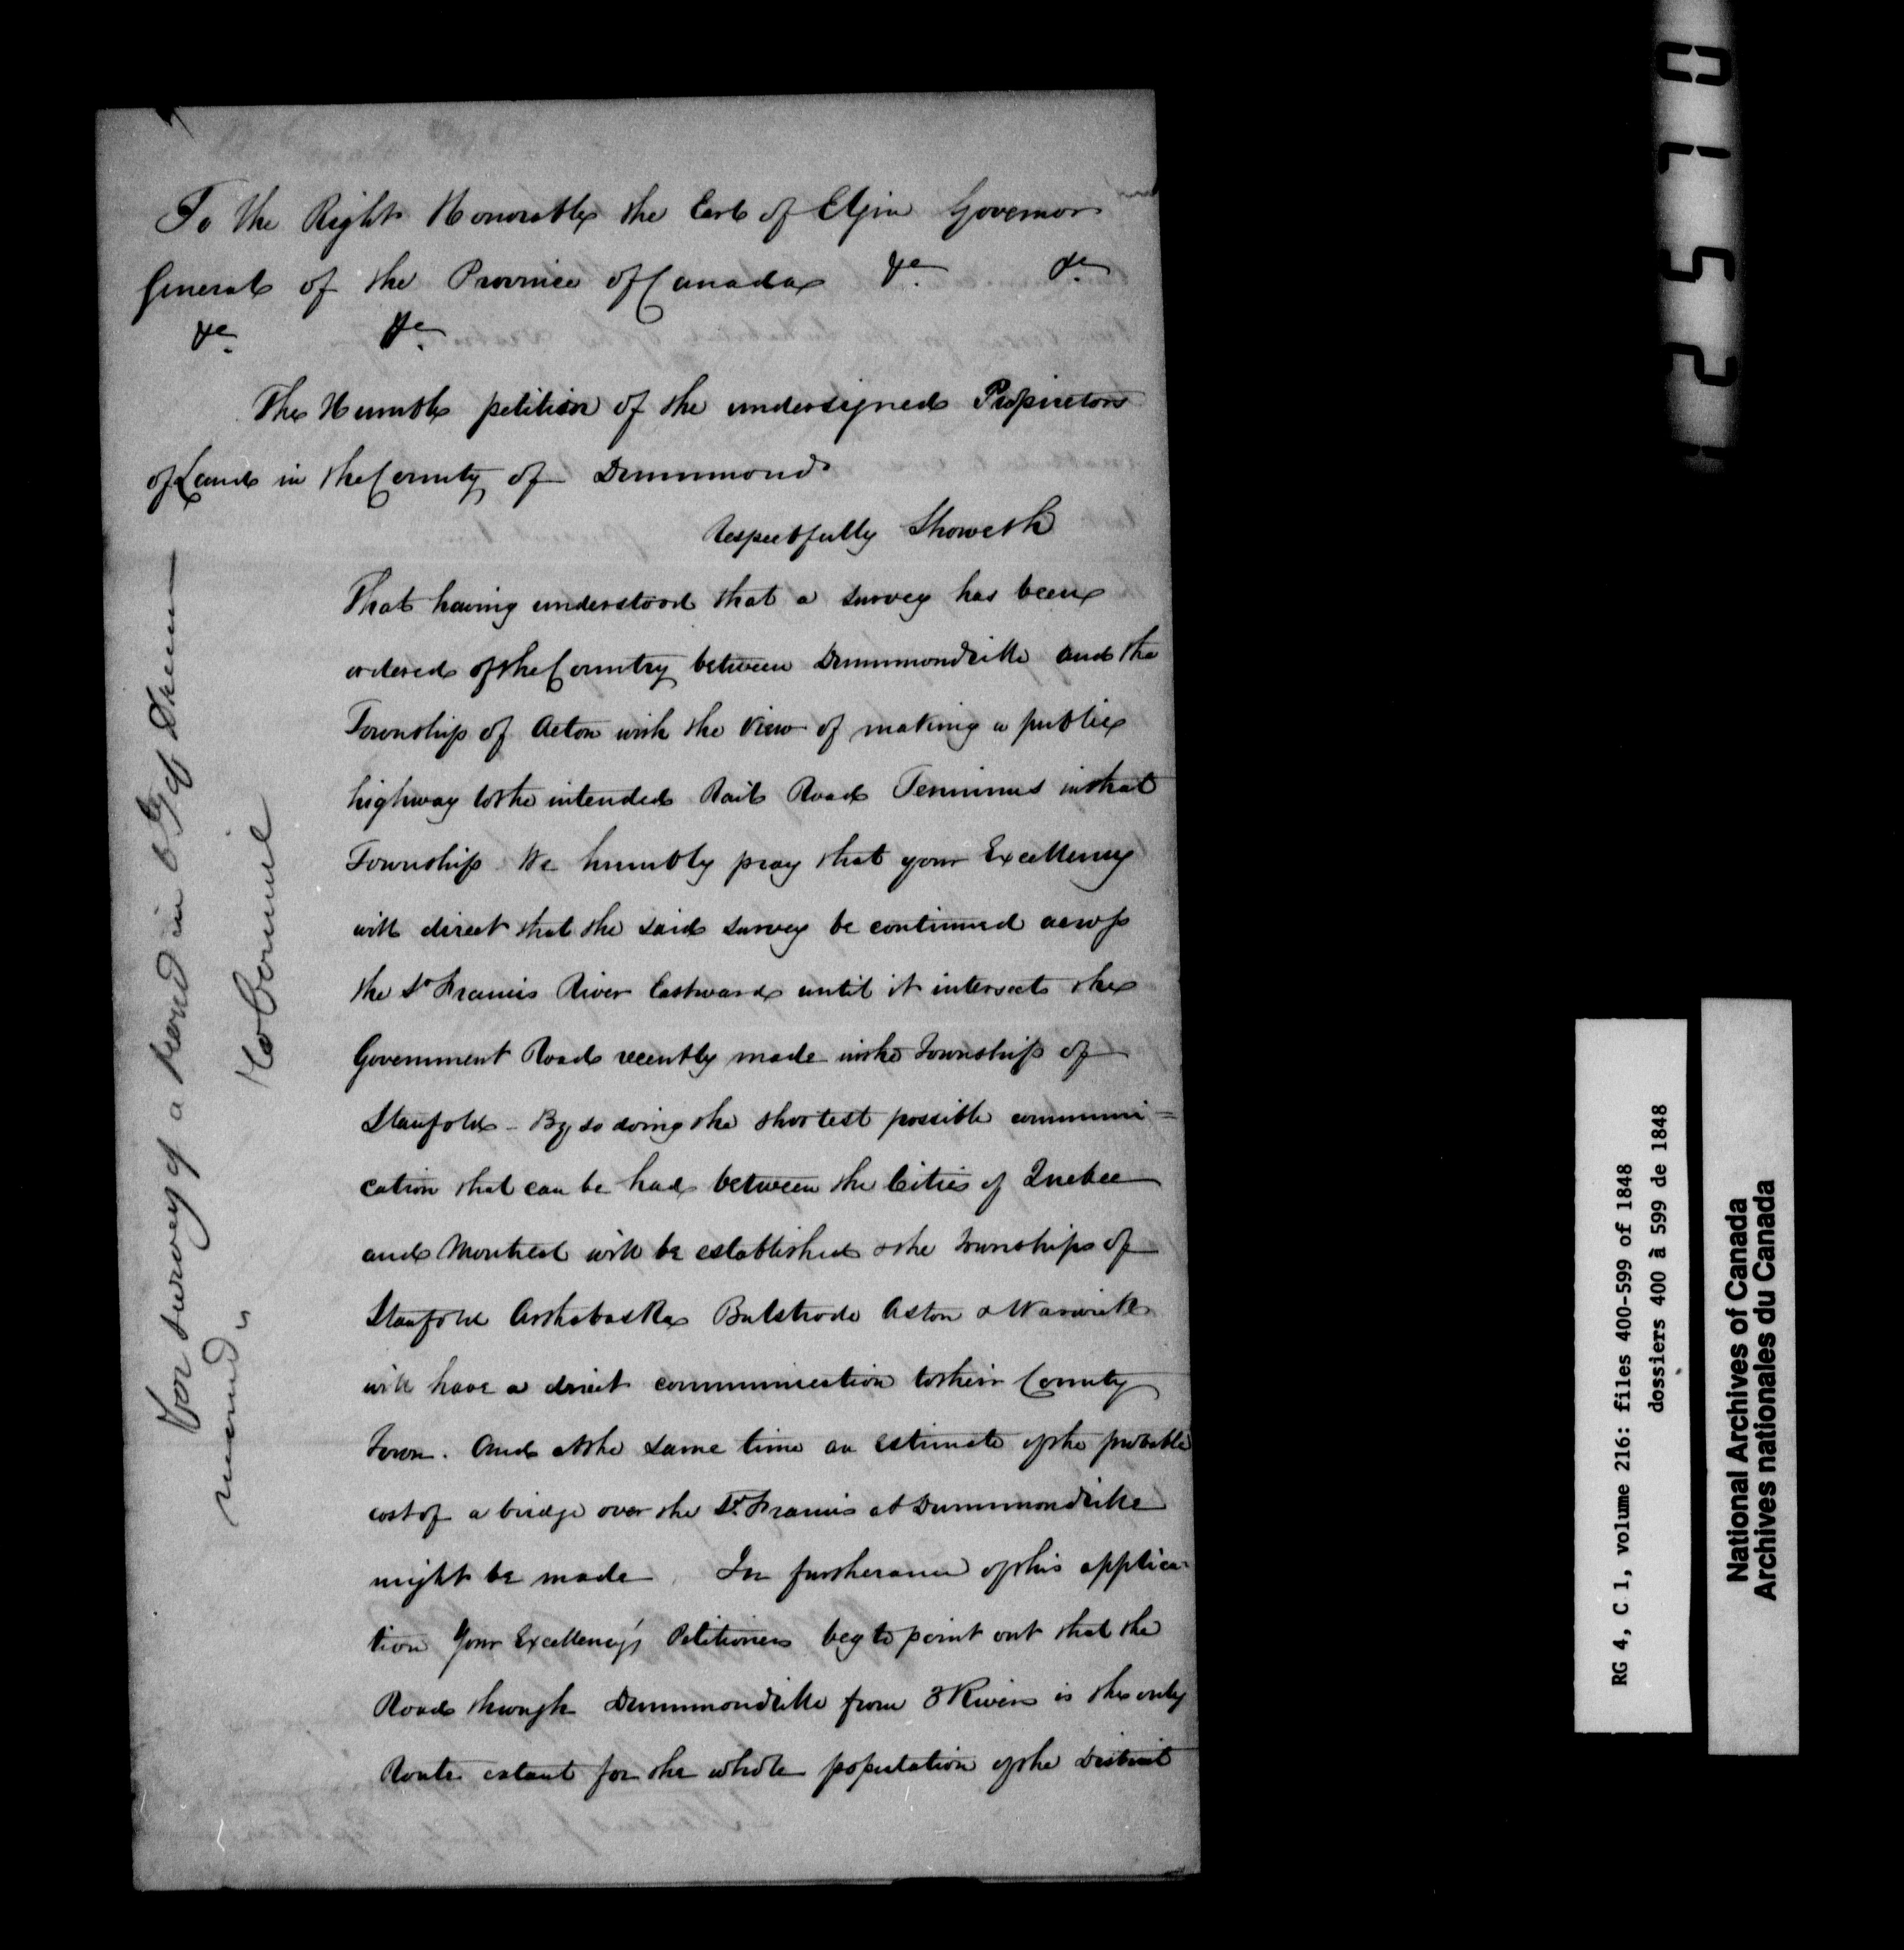 To the Right Honorable the Earl of Elgin Governor
General of the Province of Canada &c. &c.
&c. &c.
The Humble petition of the undersigned Proprietors
of Land in the County of Drummond
Respectfully Showeth
That having understood that a survey has been
ordered of the Country between Drummondville and the
Township of Acton with the view of making a public
highway to the intended Rail Road Terminus in that
Township We humbly pray that your Excellency
will direct that the said survey be continued across
the St Francis River Eastward until it intersects the
Government Road recently made in the Township of
Stanfold - By so doing the shortest possible communi=
cation that can be had between the Cities of Quebec
and Montreal will be established & the Townships of
Stanfold Arthabaska Bulstrode Aston & Warwick
will have a direct communication to their County
Town. And at the same time an estimate of the probable
cost of a bridge over the St. Francis at Drummondville
might be made. In furtherance of this applica-
tion Your Excellency's Petitioners beg to point out that the
Road through Drummondville from 3 Rivers is the only
Route extant for the whole population of the District
For survey of a road in Cty of Drum
mond"
RG 4, C 1, volume 216: files 400-599 of 1848
dossiers 400 à 599 de 1848
National Archives of Canada
Archives nationales du Canada
0152